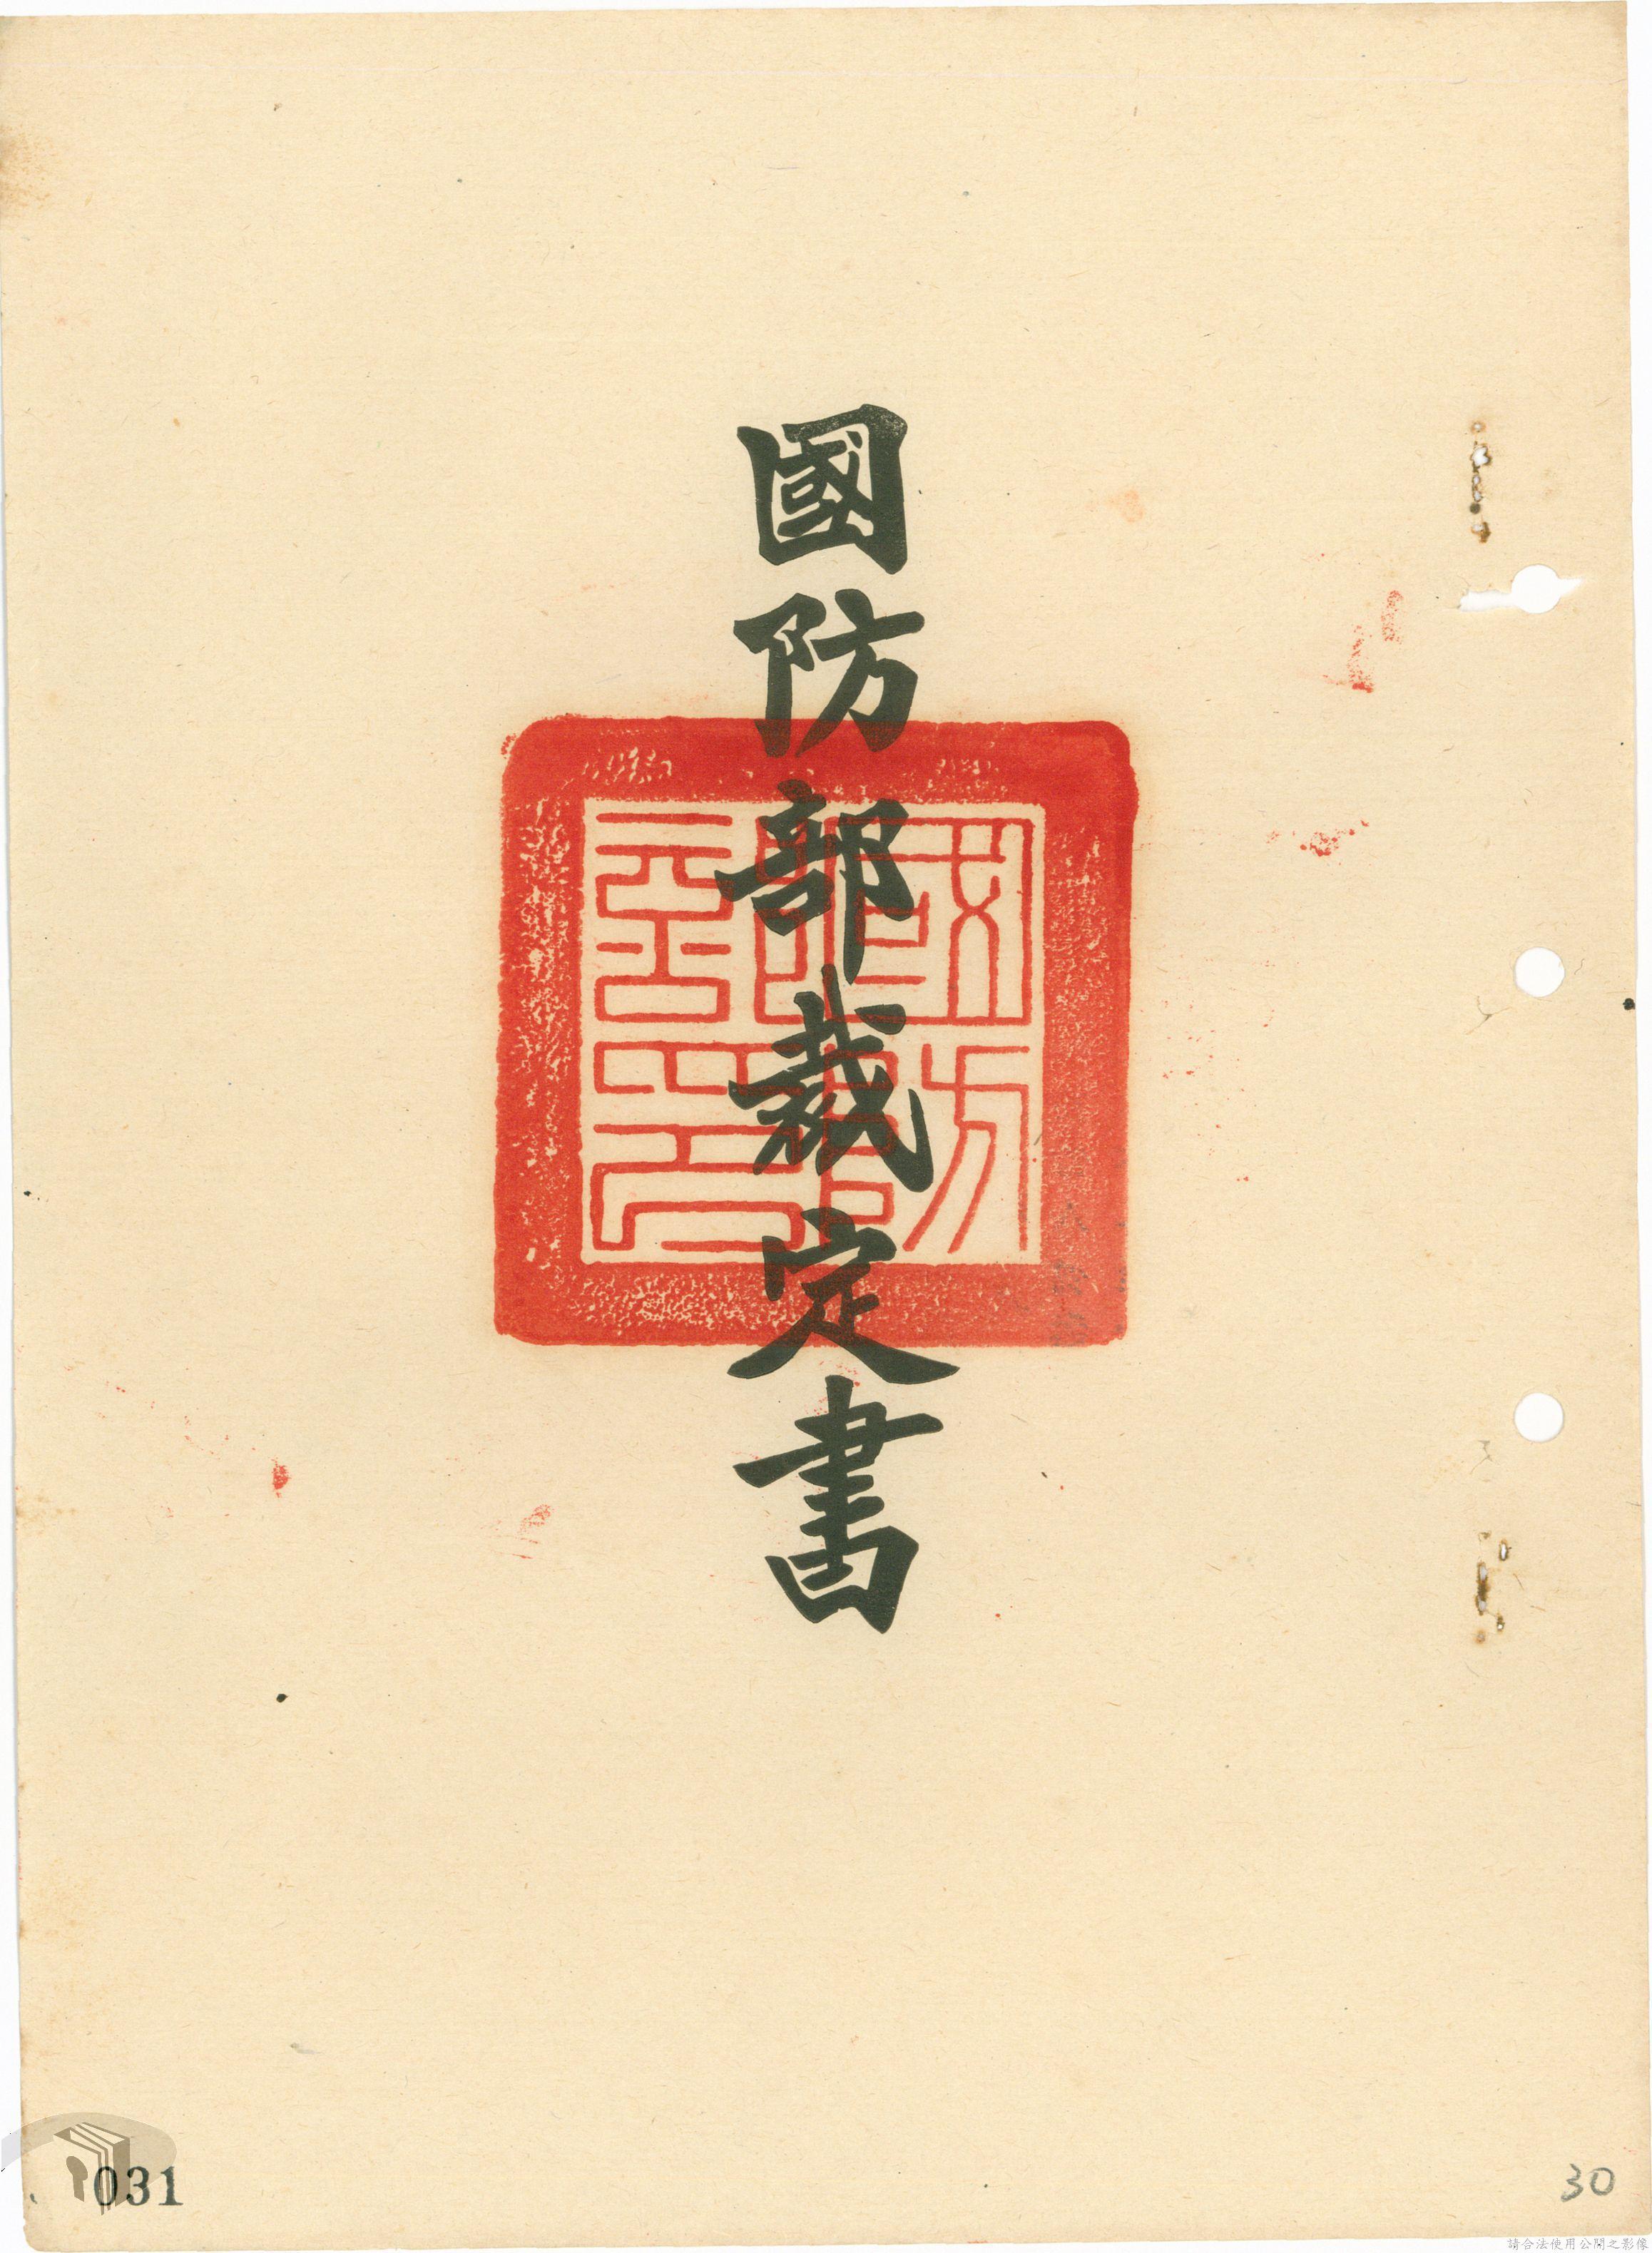 國防部裁定書
031
30
請合法使用公開之影像